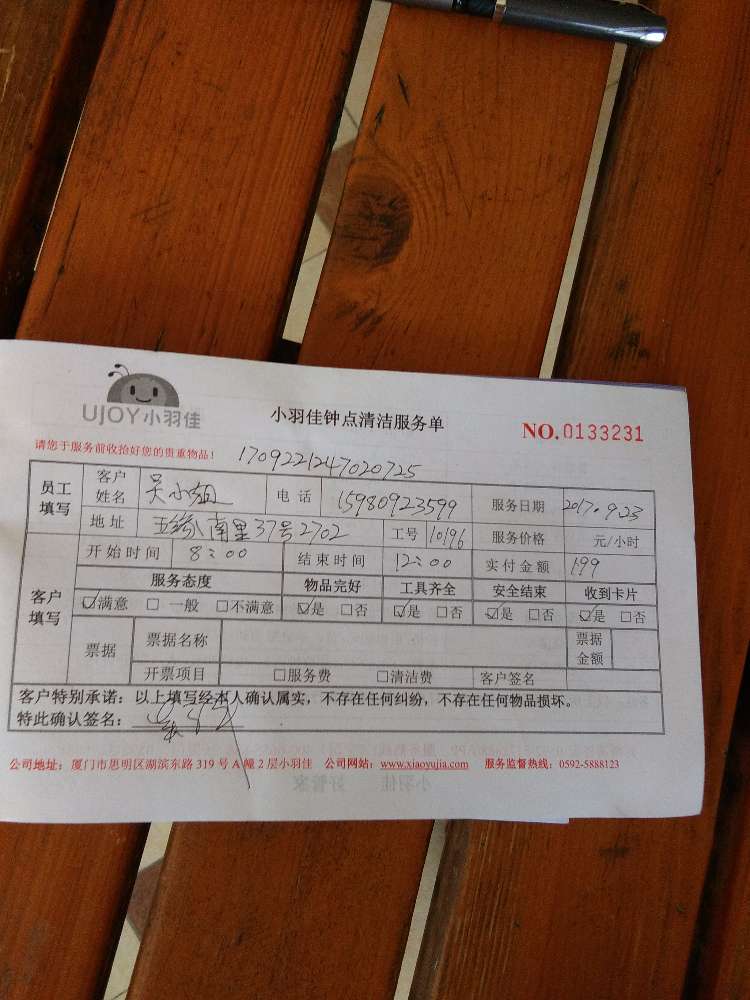 UJOY小羽佳
小羽佳钟点清洁服务单
NO.0133231
请您于服务前收拾好您的贵重物品！
1709221247020725
员工填写 客户姓名 吴小姐 电话 15980923599 服务日期 2017.9.23
地址 五缘南里37号2702 工号 10196 服务价格 元/小时
客户填写 开始时间 8:00 结束时间 12:00 实付金额 199
服务态度 物品完好 工具齐全 安全结束 收到卡片
☑满意 □一般 □不满意 ☑是 □否 ☑是 □否 ☑是 □否 ☑是 □否
票据 票据名称 票据金额
开票项目 □服务费 □清洁费 客户签名
客户特别承诺：以上填写经本人确认属实，不存在任何纠纷，不存在任何物品损坏。
特此确认签名：
公司地址：厦门市思明区湖滨东路 319 号 A 幢 2 层小羽佳 公司网站：www.xiaoyujia.com 服务监督热线：0592-5888123